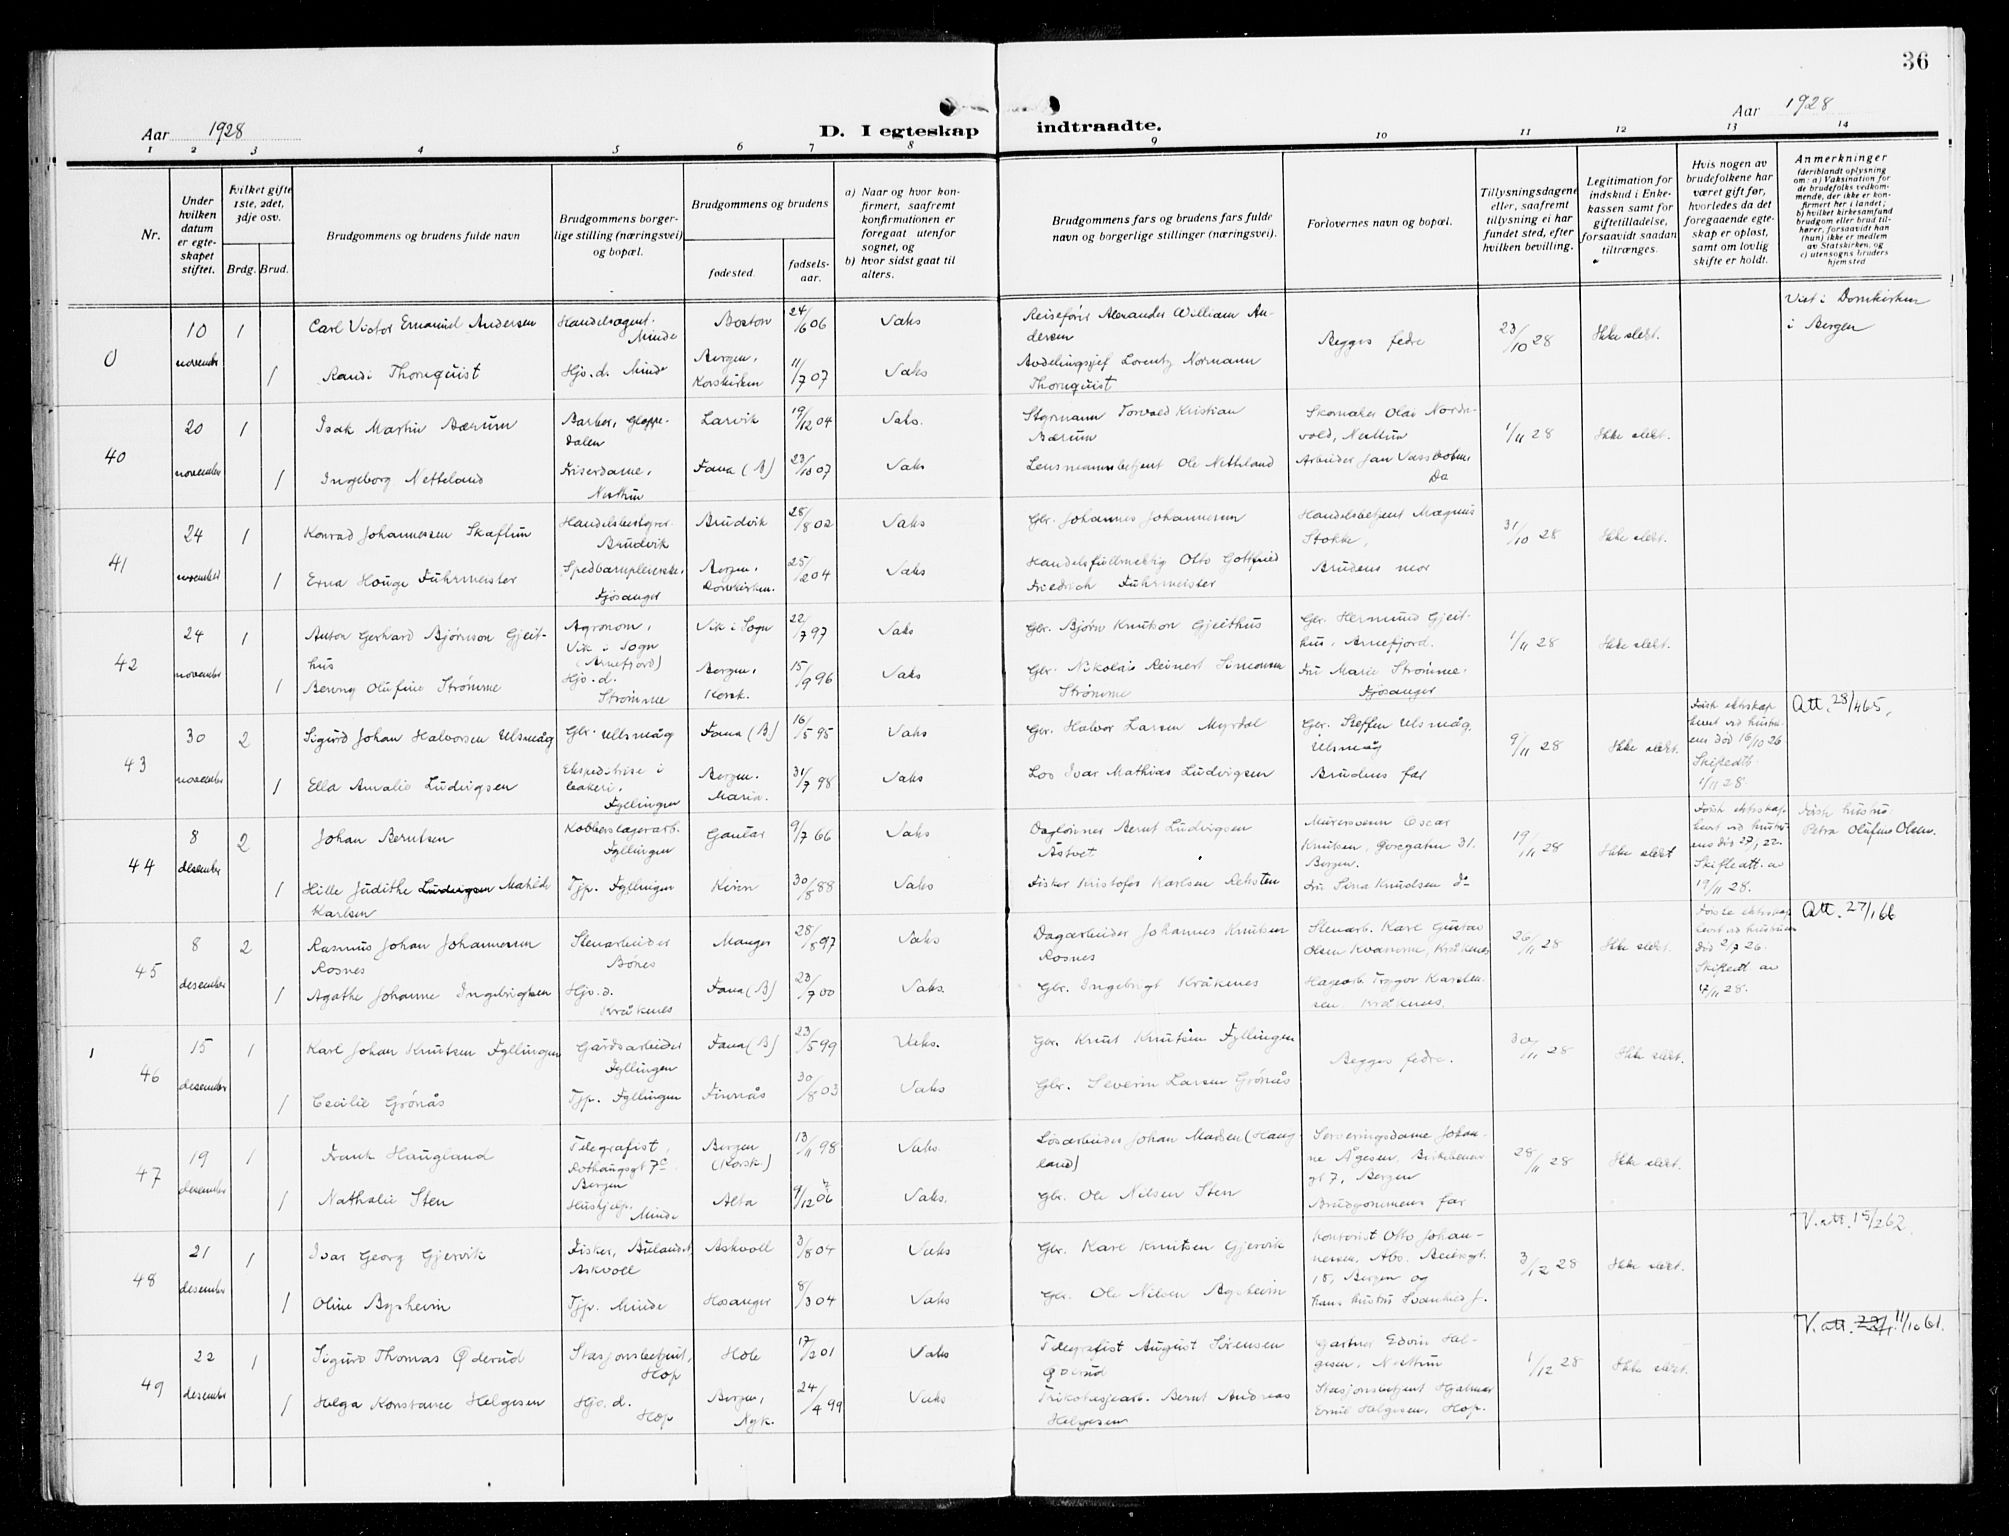 36
Aar 1928
D. I egteskap indtraadte.
Aar 1928
1 2 3 4 5 6 7 8 9 10 11 12 13 14
Nr.
Under hvilken datum er egteskapet stiftet.
Hvilket gifte 1ste, 2det, 3dje osv.
Brdg. Brud.
Brudgommens og brudens fulde navn
Brudgommens borgerlige stilling (næringsvei) og bopæl.
Brudgommens og brudens
fødested.
fødselsaar.
a) Naar og hvor konfirmert, saafremt konfirmationen er foregaat utenfor sognet, og
b) hvor sidst gaat til alters.
Brudgommens fars og brudens fars fulde navn og borgerlige stillinger (næringsvei).
Forlovernes navn og bopæl.
Tillysningsdagene eller, saafremt tillysning ei har fundet sted, efter hvilken bevilling.
Legitimation for indskud i Enkekassen samt for giftetilladelse, forsaavidt saadan tiltrænges.
Hvis nogen av brudefolkene har været gift før, hvorledes da det foregaaende egteskap er opløst, samt om lovlig skifte er holdt.
Anmerkninger (deriblandt oplysning om: a) Vaksination for de brudefolks vedkommende, der ikke er konfirmert her i landet; b) hvilket kirkesamfund brudgom eller brud tilhører, forsaavidt han (hun) ikke er medlem av Statskirken, og c) utensogns bruders hjemsted
0 10 november 1 Carl Victor Emanuel Andersen Handelsagent. Minde Boston 24/6 06 Vaks Reisefører Alexander William Andersen Begges fedre 23/10 28 Ikke slekt. Viet i Domkirken i Bergen
1 Randi Thornquist Hjv. d. Minde Bergen, Korskirken 11/7 07 Vaks Avdelingssjef Lorentz Normann Thornquist
40 20 november 1 Isak Martin Bærum Barber, Gloppedalen Larvik 19/12 04 Vaks. Styrmann Torvald Kristian Bærum Skomaker Olai Nordvold, Nesttun 1/11 28 Ikke slekt.
1 Ingeborg Netteland Friserdame, Nesttun Fana (B) 23/10 07 Vaks Lensmannsbetjent Ole Netteland Arbeider Jan Vassbotn, Do
41 24 november 1 Konrad Johannessen Skaftun Handelsbestyrer Brudvik Brudvik 28/8 02 Vaks Gbr. Johannes Johannessen Handelsbetjent Magnus Stokke, 31/10 28 Ikke slekt.
1 Erna Houge Fuhrmeister Spedbarnpleierske, Fjøsanger Bergen, Domkirken. 25/2 04 Vaks Handelsfullmektig Otto Gottfried Friedrich Fuhrmeister Brudens mor
42 24 november 1 Anton Gerhard Bjørnson Gjeithus Agronom, Vik i Sogn (Arnefjord) Vik i Sogn 22/7 97 Vaks Gbr. Bjørn Knutson Gjeithus Gbr. Hermund Gjeithus, Arnefjord. 1/11 28 Ikke slekt.
1 Benny Olufine Strømme Hjv. d. Strømme Bergen, Korsk. 15/9 96 Vaks Gbr. Nikolai Reinert Simonsen Strømme Fru Marie Strømme. Fjøsanger
43 30 november 2 Sigurd Johan Halvorsen Ulsmåg Gbr. Ulsmåg Fana (B) 16/5 95 Vaks Gbr. Halvor Larsen Myrdal Gbr. Steffen Ulsmåg, Ulsmåg 9/11 28 Ikke slekt. Første ekteskap hevet ved hustruens død 16/10 26 Skifteatt. 1/11 28. Att. 28/4 65,
1 Ella Amalie Ludvigsen Ekspeditrise i bakeri, Fyllingen Bergen. Maria. 31/7 98 Vaks Los Ivar Mathias Ludvigsen Brudens far
44 8 desember 2 Johan Berntsen Kobberslagerarb. Fyllingen Gaular 9/7 66 Vaks Daglønner Bernt Ludvigsen Åstvet Murersvenn Oscar Knutsen, Goregatn 31. Bergen. 19/11 28 Ikke slekt Første ekteskap hevet ved hustruens død Skifteatt. av 19/11 28. Første hustru: Petra Olufine Olsen.
1 Hille Judithe Mathilde Karlsen Tjp. Fyllingen Kinn 30/8 88 Vaks Fisker Kristofer Karlsen Reksten Fru Sina Knudsen do
45 8 desember 2 Rasmus Johan Johannessen Rosnes Stenarbeider Bønes Manger 28/8 97 Vaks Dagarbeider Johannes Knutsen Rosnes Stenarb. Karl Gustav Olsen Kvamme, Kråkenes 26/11 28 Ikke slekt. Første ekteskap hevet ved hustruens død 2/7 26. Skifteatt av 17/11 28. Att. 27/1 66
1 Agathe Johanne Ingebrigtsen Hjv. d. Kråkenes Fana (B) 23/7 00 Vaks. Gbr. Ingebrigt Kråkenes Hagearb. Trygve Karstensen, Kråkenes.
1 46 15 desember 1 Karl Johan Knutsen Fyllingen Gårdsarbeider Fyllingen Fana (B) 23/5 99 Vaks. Gbr. Knut Knutsen Fyllingen Begges fedre. 30/11 28 Ikke slekt.
1 Cecilie Grønås Tjp. Fyllingen Finnås 30/8 03 Vaks Gbr. Severin Larsen Grønås
47 19 desember 1 Frank Haugland Telegrafist, Rothaugsgt 7c. Bergen Bergen (Korsk.) 13/11 98 Vaks. Løsarbeider Johan Madsen (Haugland) Serveringsdame Johanne Ågesen, Birkebenergt 7, Bergen 28/11 28 Ikke slekt.
1 Nathalie Sten Hushjelp. Minde Alta 9/12 06 Vaks. Gbr. Ole Nilsen Sten Brudgommens far
48 21 desember 1 Ivar Georg Gjervik Fisker, Bulandet, Askvoll Askvoll 3/8 04 Vaks Gbr. Karl Knutsen Gjervik Kontorist Otto Johannessen, Abs. Beitsgt. 18, Bergen og hans hustru Svanhild J. 3/12 28 Ikke slekt. V. att. 15/2 62.
1 Oline Bysheim Tjp. Minde Hosanger 8/3 04 Vaks Gbr. Ole Nilsen Bysheim
49 22 desember 1 Sigurd Thomas Øderud Stasjonsbetjent, Hop Hole 17/2 01 Vaks Telegrafist August Sørensen Øderud Gartner Edvin Helgesen, Nesttun 1/12 28 Ikke slekt. V. att. 11/10 61.
1 Helga Konstanse Helgesen Hjv. d. Hop Bergen, Nyk. 24/4 99 Vaks Trikotasjearb. Bernt Andreas Helgesen Stasjonsbetjent Hjalmar Emil Helgesen, Hop.